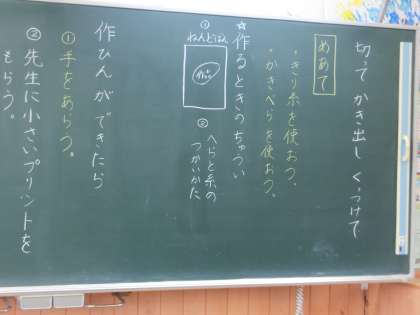 切って かき出し くっつけて
めあて
・きり糸を使おう。
・かきべらを使おう。
☆作るときのちゅうい
①
ねんどばん
②
へらと糸の
つかいかた
作ひんができたら
①手をあらう。
②先生に小さいプリントを
もらう。